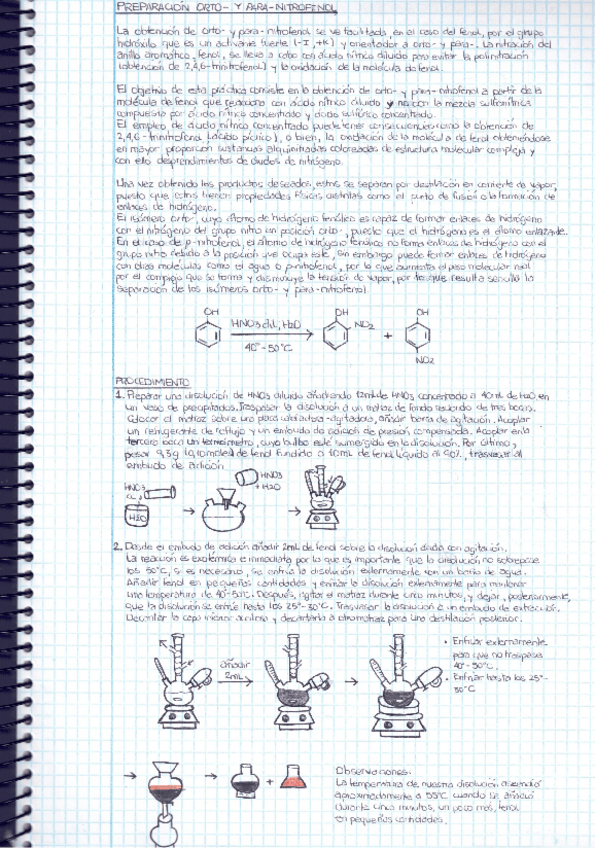 PREPARACIÓN ORTO- Y PARA-NITROFENOL
La obtención de orto- y para-nitrofenol se ve facilitada, en el caso del fenol, por el grupo
hidróxilo que es un activante fuerte (-I, +K) y orientador a orto- y para-. La nitración del
anillo aromático, fenol, se lleva a cabo con ácido nítrico diluido para evitar la polinitración
(obtención de 2,4,6-trinitrofenol) y la oxidación de la molécula de fenol.
El objetivo de esta práctica consiste en la obtención de orto- y para-nitrofenol a partir de la
molécula de fenol que reacciona con ácido nítrico diluido y no con la mezcla sulfonítrica
compuesta por ácido nítrico concentrado y ácido sulfúrico concentrado.
El empleo de ácido nítrico concentrado puede tener consecuencias como la obtención de
2,4,6-trinitrofenol (ácido pícrico), o bien, la oxidación de la molécula de fenol obteniéndose
en mayor proporción sustancias alquitranadas coloreadas de estructura molecular compleja y
con ello desprendimientos de óxidos de nitrógeno.
Una vez obtenido los productos deseados, estos se separan por destilación en corriente de vapor,
puesto que estos tienen propiedades físicas distintas como el punto de fusión o la formación de
enlaces de hidrógeno.
El isómero orto-, cuyo átomo de hidrógeno fenólico es capaz de formar enlaces de hidrógeno
con el nitrógeno del grupo nitro en posición orto-, puesto que el hidrógeno es el átomo enlazante.
En el caso de p-nitrofenol, el átomo de hidrógeno fenólico no forma enlaces de hidrógeno con el
grupo nitro debido a la posición que ocupa este, sin embargo puede formar enlaces de hidrógeno
con otras moléculas como el agua o p-nitrofenol, por lo que aumenta el peso molecular
por el complejo que se forma y disminuye la tensión de vapor, por lo que resulta sencilla la
separación de los isómeros orto- y para-nitrofenol.
OH HNO3 dil, H2O OH NO2 + OH
40°-50°C
NO2
PROCEDIMIENTO
1. Preparar una disolución de HNO3 diluido añadiendo 12mL de HNO3 concentrado a 40mL de H2O, en
un vaso de precipitados. Traspasar la disolución a un matraz de fondo redondo de tres bocas.
Colocar el matraz sobre una placa calefactora-agitadora, añadir barra de agitación. Acoplar
un refrigerante de reflujo y un embudo de adición de presión compensada. Acoplar en la
tercera boca un termómetro, cuyo bulbo esté sumergido en la disolución. Por último,
pesar 9,3g de fenol fundido o 10mL de fenol líquido al 90%, trasvasar al
embudo de adición.
HNO3
H2O
HNO3
+ H2O
2. Desde el embudo de adición añadir 2mL de fenol sobre la disolución ácida con agitación.
La reacción es exotérmica e inmediata por lo que es importante que la disolución no sobrepase
los 50°C, si es necesario, se enfría la disolución externamente con un baño de agua.
Añadir fenol en pequeñas cantidades y enfriar la disolución externamente para mantener
una temperatura de 40-50°C. Después, agitar el matraz durante cinco minutos, y dejar, posteriormente,
que la disolución se enfríe hasta los 25°-30°C. Trasvasar la disolución a un embudo de extracción.
Decantar la capa inferior aceitosa y decantarla a otro matraz para una destilación posterior.
añadir
2mL
• Enfriar externamente
para que no traspase
40°-50°C.
• Enfriar hasta los 25°-
30°C
+
Observaciones:
La temperatura de nuestra disolución ascendió
aproximadamente a 55°C cuando se añadió
durante cinco minutos, un poco más, fenol
en pequeñas cantidades.